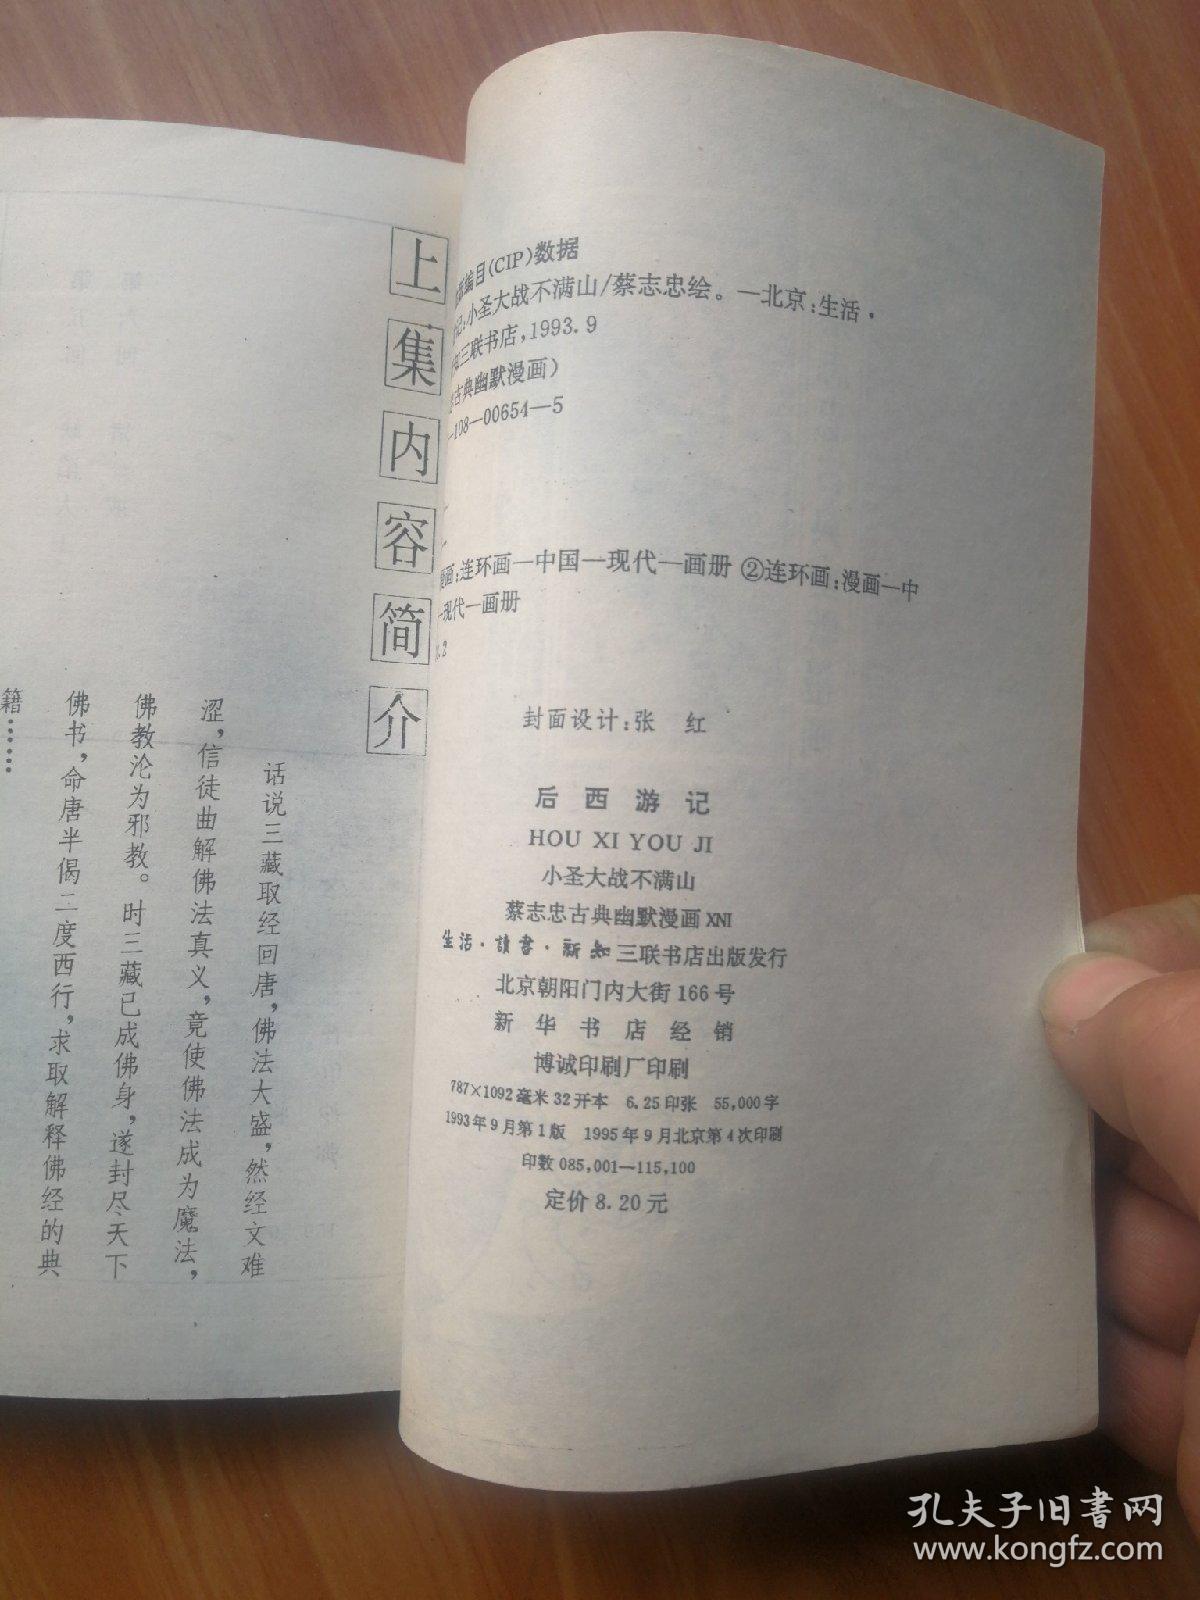 上集内容简介
话说三藏取经回唐，佛法大盛，然经文难
涩，信徒曲解佛法真义，竟使佛法成为魔法，
佛教沦为邪教。时三藏已成佛身，遂封尽天下
佛书，命唐半偈二度西行，求取解释佛经的典
籍……
编目(CIP)数据
记:小圣大战不满山/蔡志忠绘。—北京:生活·
三联书店,1993.9
古典幽默漫画)
—108—00654—5
画:连环画—中国—现代—画册 ②连环画:漫画—中
—现代—画册
.2
封面设计:张 红
后西游记
HOU XI YOU JI
小圣大战不满山
蔡志忠古典幽默漫画XNI
生活·讀書·新知三联书店出版发行
北京朝阳门内大街166号
新华书店经销
博诚印刷厂印刷
787×1092毫米32开本 6.25印张 55,000字
1993年9月第1版 1995年9月北京第4次印刷
印数085,001—115,100
定价8.20元
孔夫子旧书网
www.kongfz.com